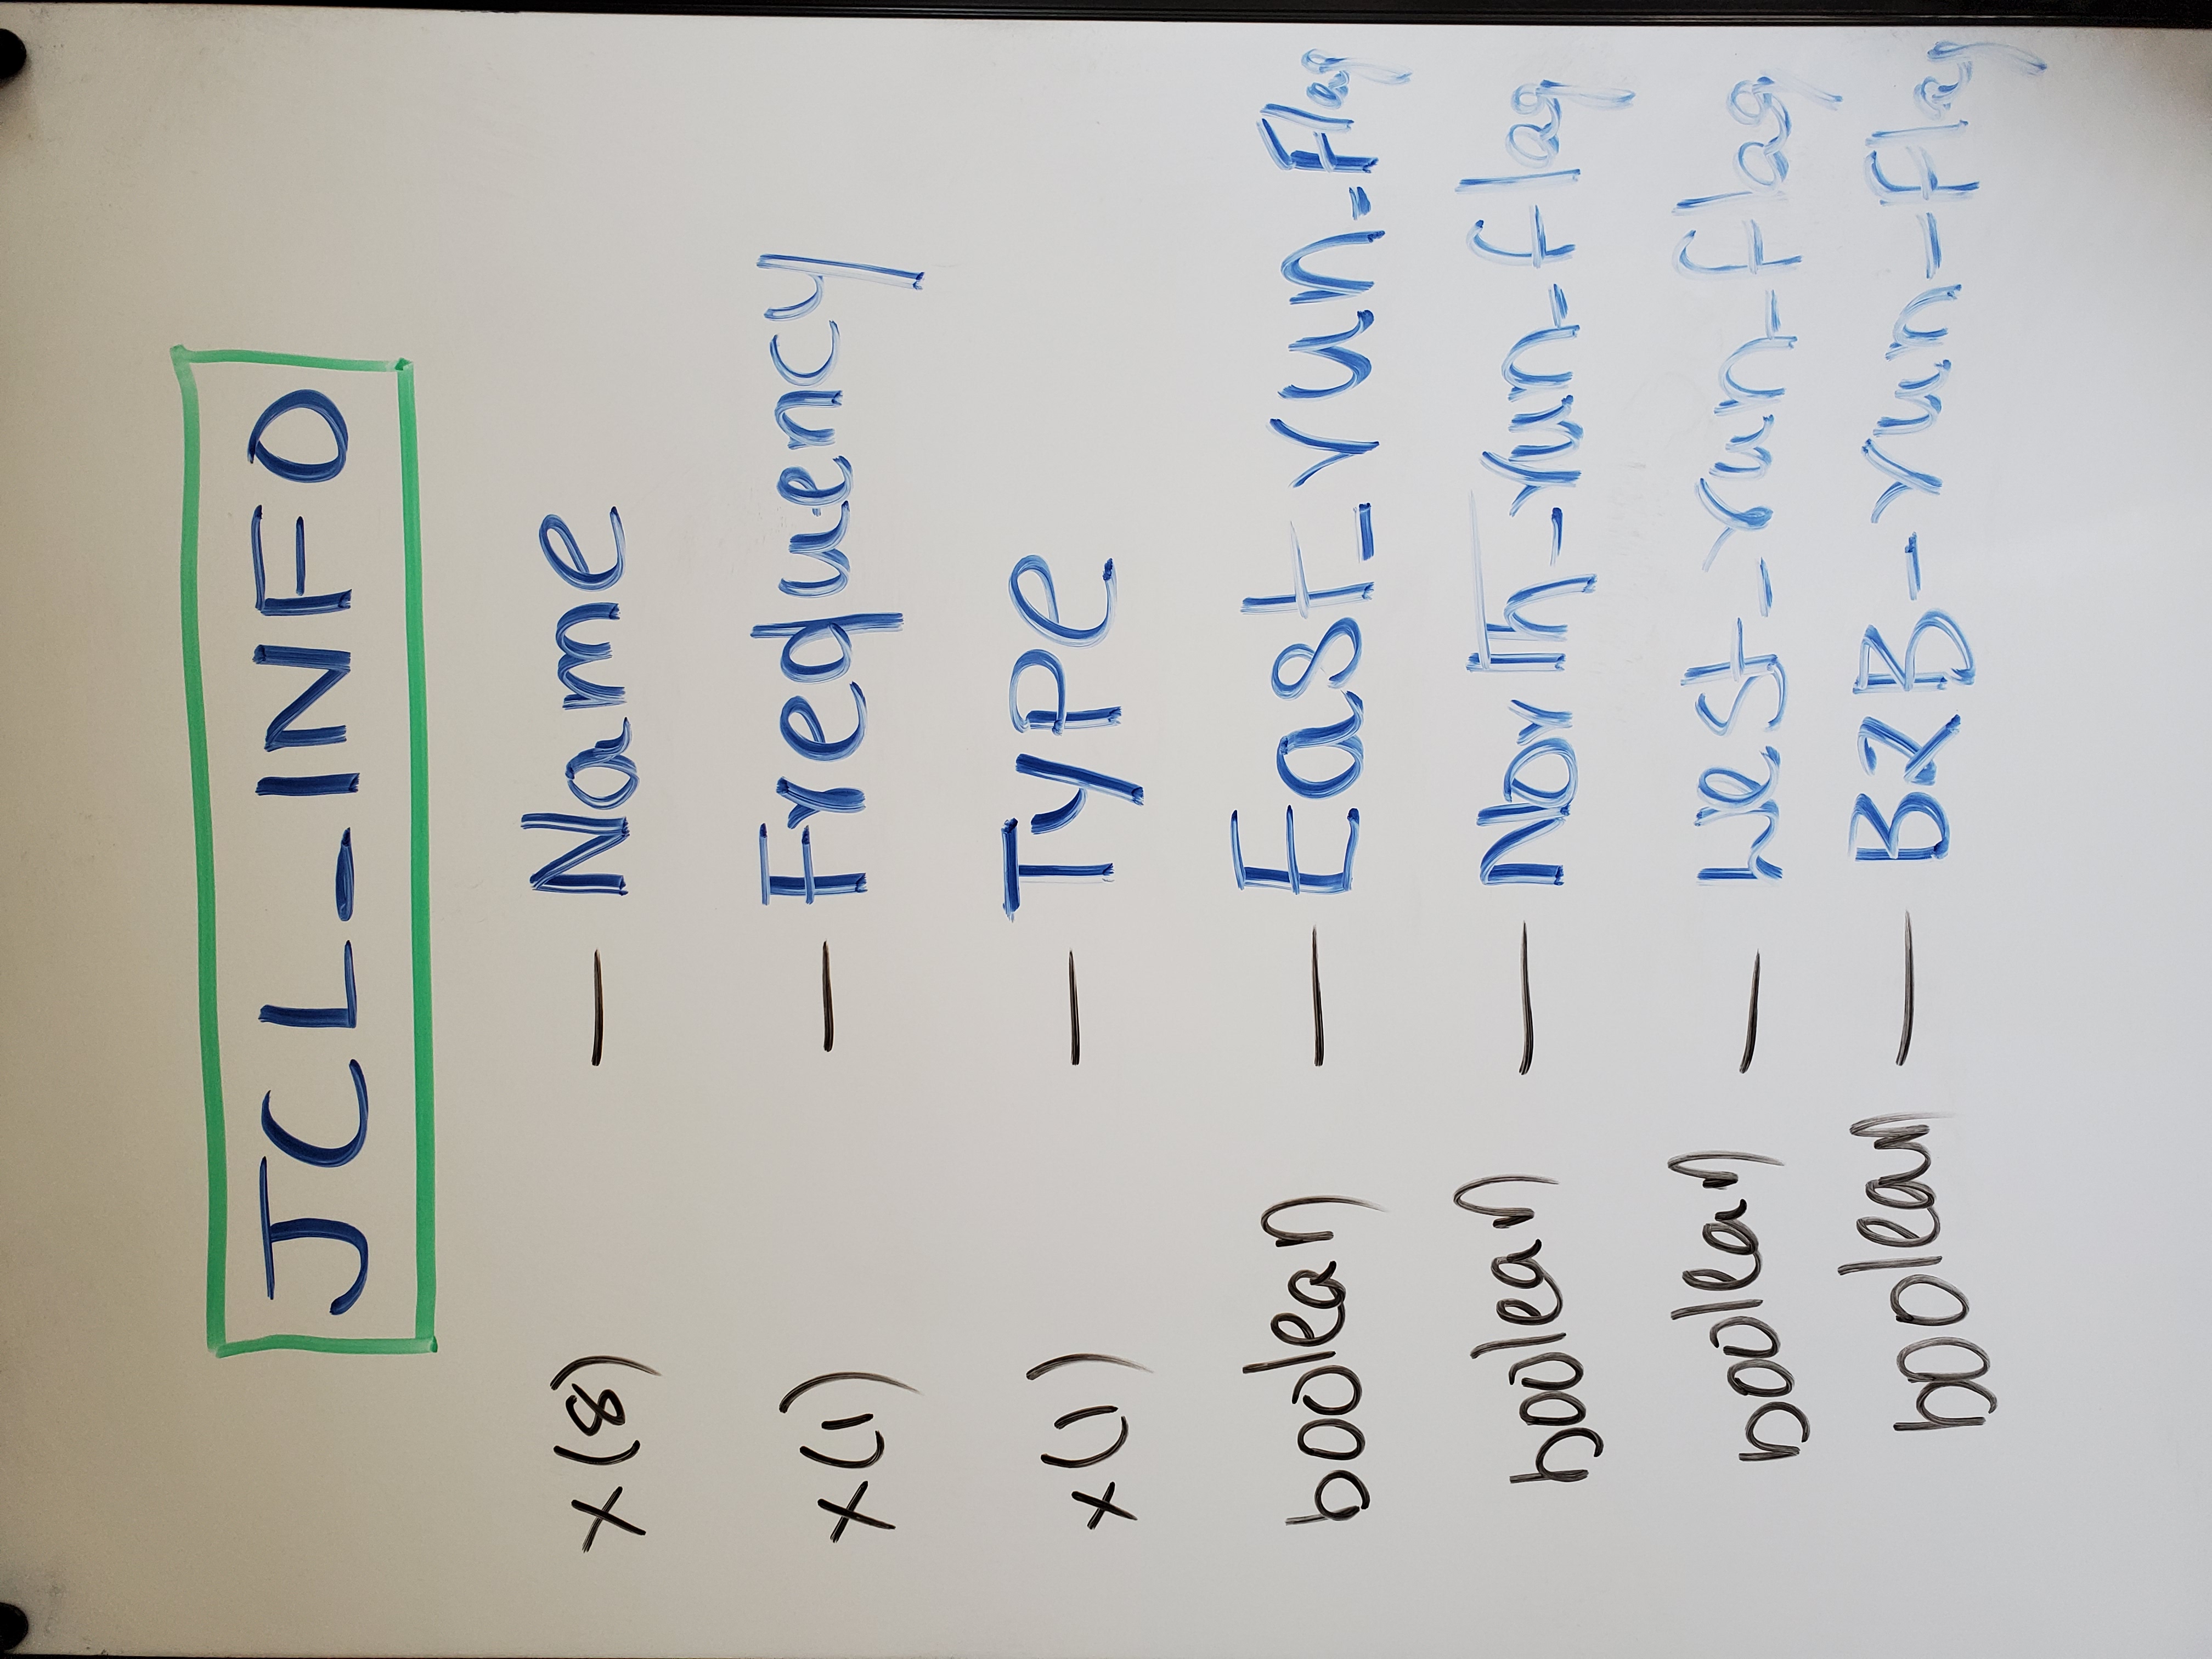 JCL_INFO
X(8) — Name
X(1) — Frequency
X(1) — Type
boolean — East_run_flag
boolean — North_run_flag
boolean — West_run_flag
boolean — B2B_run_flag